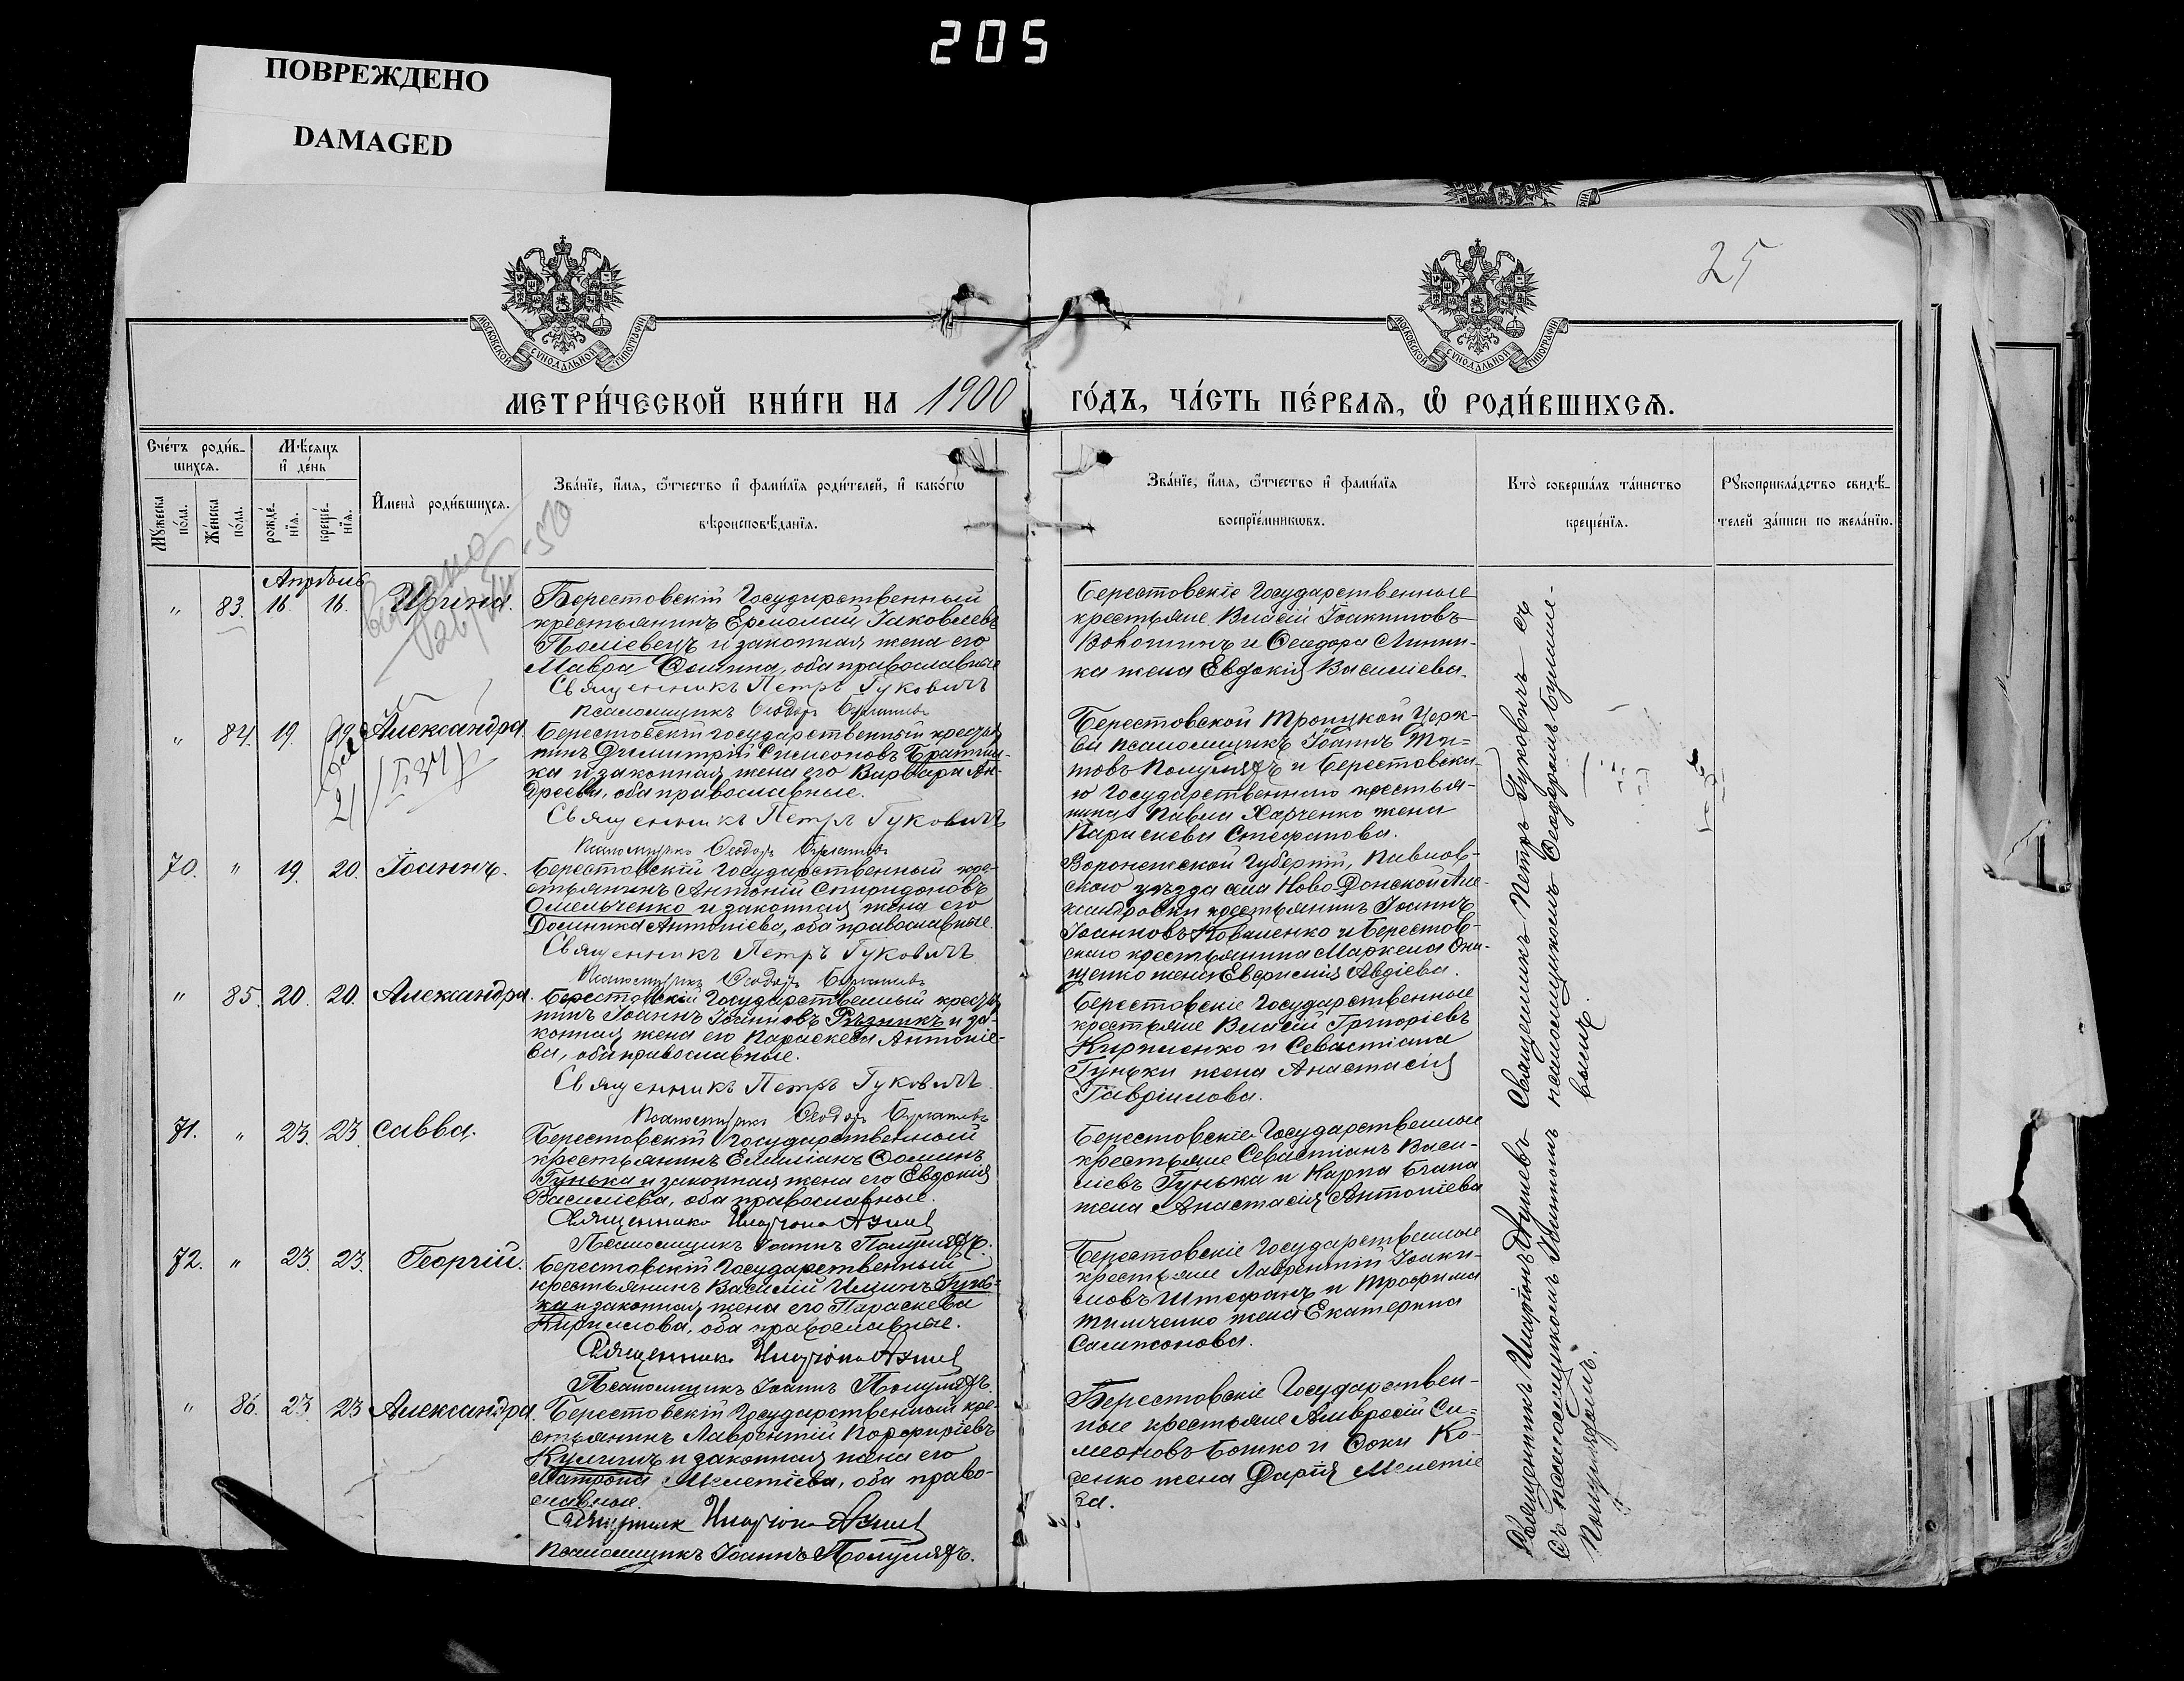 205
ПОВРЕЖДЕНО
DAMAGED
25
МОСКОВСКОЙ СѴНОДАЛЬНОЙ ТИПОГРАФІИ
МОСКОВСКОЙ СѴНОДАЛЬНОЙ ТИПОГРАФІИ
МЕТРИ́ЧЕСКОЙ КНИ́ГИ НА 1900
ГО́ДЪ, ЧА́СТЬ ПЕ́РВАѦ, Ѿ РОДИ́ВШИХСѦ.
Сче́тъ роди́в-
шихсѧ.
Мꙋ́жеска
по́ла.
Же́нска
по́ла.
Мѣ́сѧцъ
и҆ де́нь
рожде́-
нїѧ.
креще́-
нїѧ.
И҆мена̀ роди́вшихсѧ.
Зва́нїе, и҆́мѧ, ѻ҆́тчество и҆ фами́лїѧ роди́телей, и҆ како́гѡ
вѣроисповѣ́данїѧ.
Зва́нїе, и҆́мѧ, ѻ҆́тчество и҆ фами́лїѧ
воспрїе́мникѡвъ.
Кто̀ соверша́лъ та́инство
креще́нїѧ.
Рꙋкоприкла́дство свидѣ́-
телей за́писи по жела́нїю.
Апрѣль
„ 83. 16. 16. Ирина.
Берестовскій Государственный
крестьянинъ Ермолай Іаковлевъ
и законная жена его
Мавра Ѳомина, оба православные
Священникъ Петръ Гуковичъ
Псаломщикъ Ѳеодоръ
Берестовскіе Государственные
крестьяне Власій Іоакимовъ
и Ѳеодора
ка жена Евдокія Василіева.
„ 84. 19. 19 Александра.
Берестовскій государственный крестья
нинъ Димитрій Симеоновъ
ка и законная жена его Варвара Ан-
дреева, оба православные.
Священникъ Петръ Гуковичъ
Псаломщикъ Ѳеодоръ
Берестовской Троицкой Церк-
ви псаломщикъ Іоаннъ Ти-
товъ Полулядъ и Берестовска-
го Государственнаго крестья-
нина Павла Харченко жена
Параскева Стефанова.
70. „ 19. 20. Іоаннъ.
Берестовскій Государственный кре-
стьянинъ Антоній Спиридоновъ
Омельченко и законная жена его
Домника Антоніева, оба православные.
Священникъ Петръ Гуковичъ
Псаломщикъ Ѳеодоръ
Воронежской Губерніи, Павлов-
скаго уѣзда села Ново-Донской Але-
ксандровки крестьянинъ Іоаннъ
Іоанновъ Коваленко и Берестов-
скаго крестьянина Маркела Они-
щенко жена Евфимія Авдіева.
„ 85. 20. 20. Александра.
Берестовскій Государственный крестья
нинъ Іоаннъ Іоанновъ Рѣзникъ и за-
конная жена его Параскева Антоніе-
ва, оба православные.
Священникъ Петръ Гуковичъ
Псаломщикъ Ѳеодоръ
Берестовскіе Государственные
крестьяне Власій Григоріевъ
Кириленко и Севастіана
Гуньки жена Анастасія
Гавріилова.
71. „ 23. 23. Савва.
Берестовскій Государственный
крестьянинъ Емиліанъ Ѳоминъ
Гунька и законная жена его Евдокія
Василіева, оба православные.
Священникъ Иларіонъ
Псаломщикъ Іоаннъ Полулядъ.
Берестовскіе Государственные
крестьяне Севастіанъ Васи-
ліевъ Гунька и Карпа
жена Анастасія Антоніева
72. „ 23. 23. Георгій.
Берестовскій Государственный
крестьянинъ Василій Гунь-
ка и законная жена его Параскева
Кириллова, оба православные.
Священникъ Иларіонъ
Псаломщикъ Іоаннъ Полулядъ.
Берестовскіе Государственные
крестьяне Лаврентій Іоаки-
мовъ Штефанъ и Трофима
Тимченко жена Екатерина
Сампсонова.
„ 86. 23 23 Александра.
Берестовскій Государственный кре-
стьянинъ Лаврентій Порфиріевъ
и законная жена его
Матрона Мелетіева, оба право-
славные.
Священникъ Иларіонъ
Псаломщикъ Іоаннъ Полулядъ.
Берестовскіе Государствен-
ные крестьяне Амвросій Си-
меоновъ Бошко и Ѳоки Ко-
жена Дарія Мелетіе
ва.
Священникъ Петръ Гуковичъ съ
псаломщикомъ Ѳеодоромъ
Священникъ Иларіонъ
съ псаломщикомъ Іоанномъ
Полулядомъ.